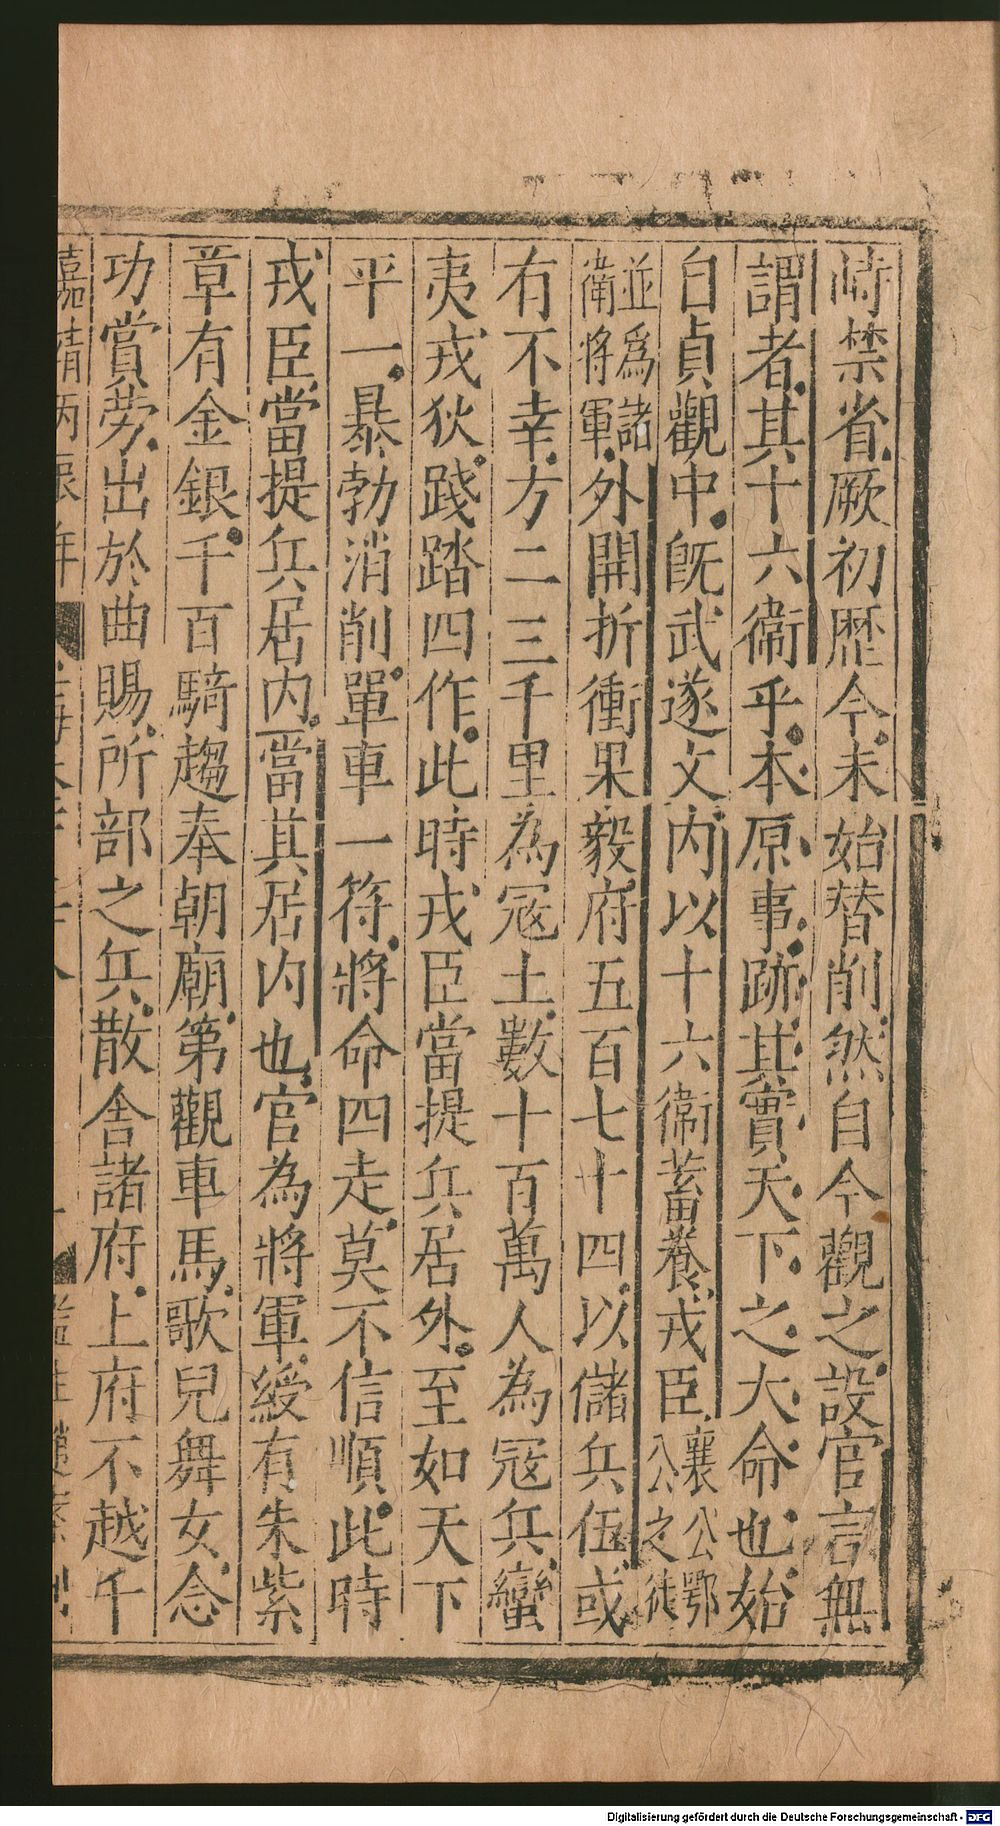 峙禁省厥初歴今未始替削然自今觀之設官言無
謂者其十六衛乎本原事跡其實天下之大命也始
自貞觀中旣武遂文内以十六衛蓄養戎臣襄公鄂公之徒
並爲諸衛將軍外開折衝果毅府五百七十四以儲兵伍或
有不幸方二三千里為冦土數十百萬人為冦兵蠻
夷戎狄踐踏四作此時戎臣當提兵居外至如天下
平一暴勃消削單車一符將命四走莫不信順此時
戎臣當提兵居内當其居内也官為將軍綬有朱紫
章有金銀千百騎趨奉朝廟第觀車馬歌兒舞女念
功賞勞出於曲賜所部之兵散舍諸府上府不越千
嘉靖丙辰年
Digitalisierung gefördert durch die Deutsche Forschungsgemeinschaft - DFG